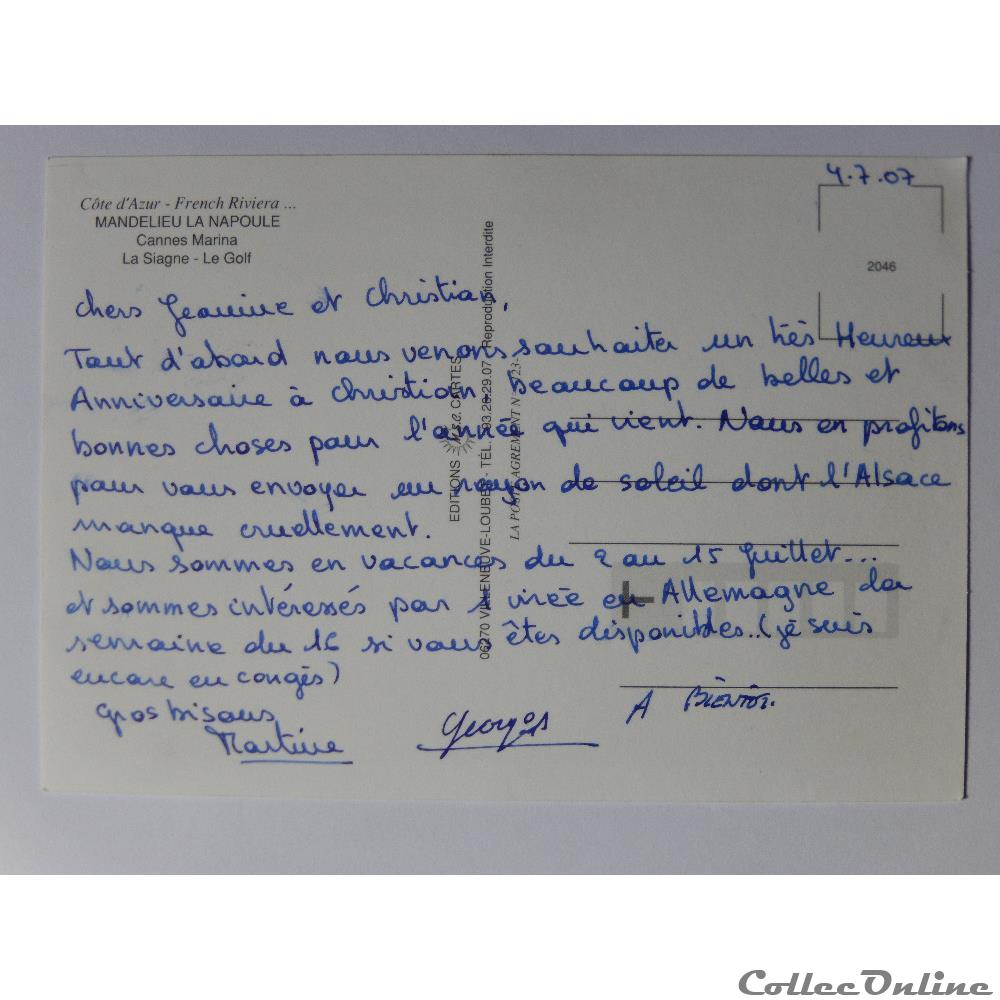 4.7.07
Côte d'Azur - French Riviera ...
MANDELIEU LA NAPOULE
Cannes Marina
La Siagne - Le Golf
2046
chers Jeannine et Christian,
Tout d'abord nous venons souhaiter un très Heureux
Anniversaire à Christian, beaucoup de belles et
bonnes choses pour l'année qui vient. Nous en profitons
pour vous envoyer un rayon de soleil dont l'Alsace
manque cruellement.
Nous sommes en vacances du 2 au 15 juillet...
et sommes intéressés par virée en Allemagne la
semaine du 16 si vous êtes disponibles..(je suis
encore en congés)
Gros bisous
Martine
Georges
A BIENTÔT.
EDITIONS CARTES
06270 VILLENEUVE-LOUBET - TÉL. 93.20.29.07 - Reproduction Interdite
LA POSTE AGREMENT N°
CollecOnline